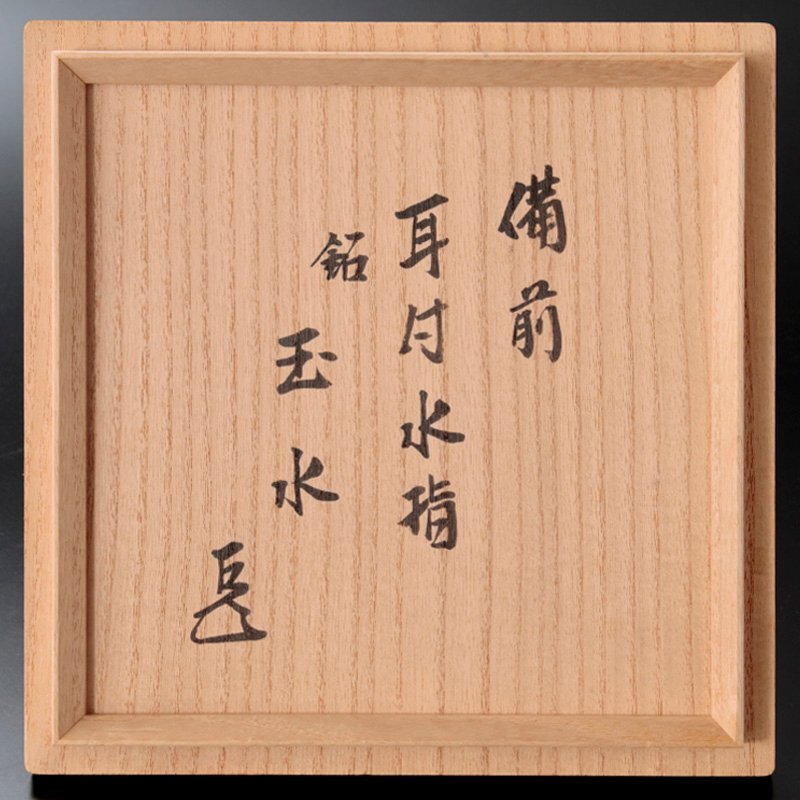 備前
耳付水指
銘
玉水